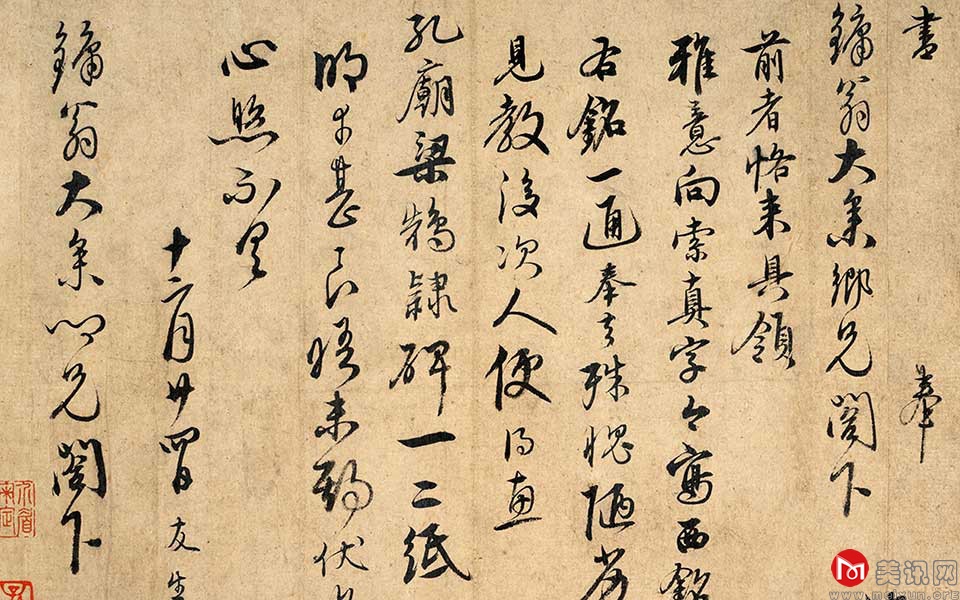 書 奉
鏞翁大參鄉兄閣下
前者恪來具領
雅意向索真字今寫西銘
右銘一通奉去殊愧陋劣
見教後次人便得惠
孔廟梁鵠隸碑一二紙
明本甚良晤未期伏
心照不具
十二月廿四日友生
鏞翁大參 兄閣下
美讯网
www.meixun.org